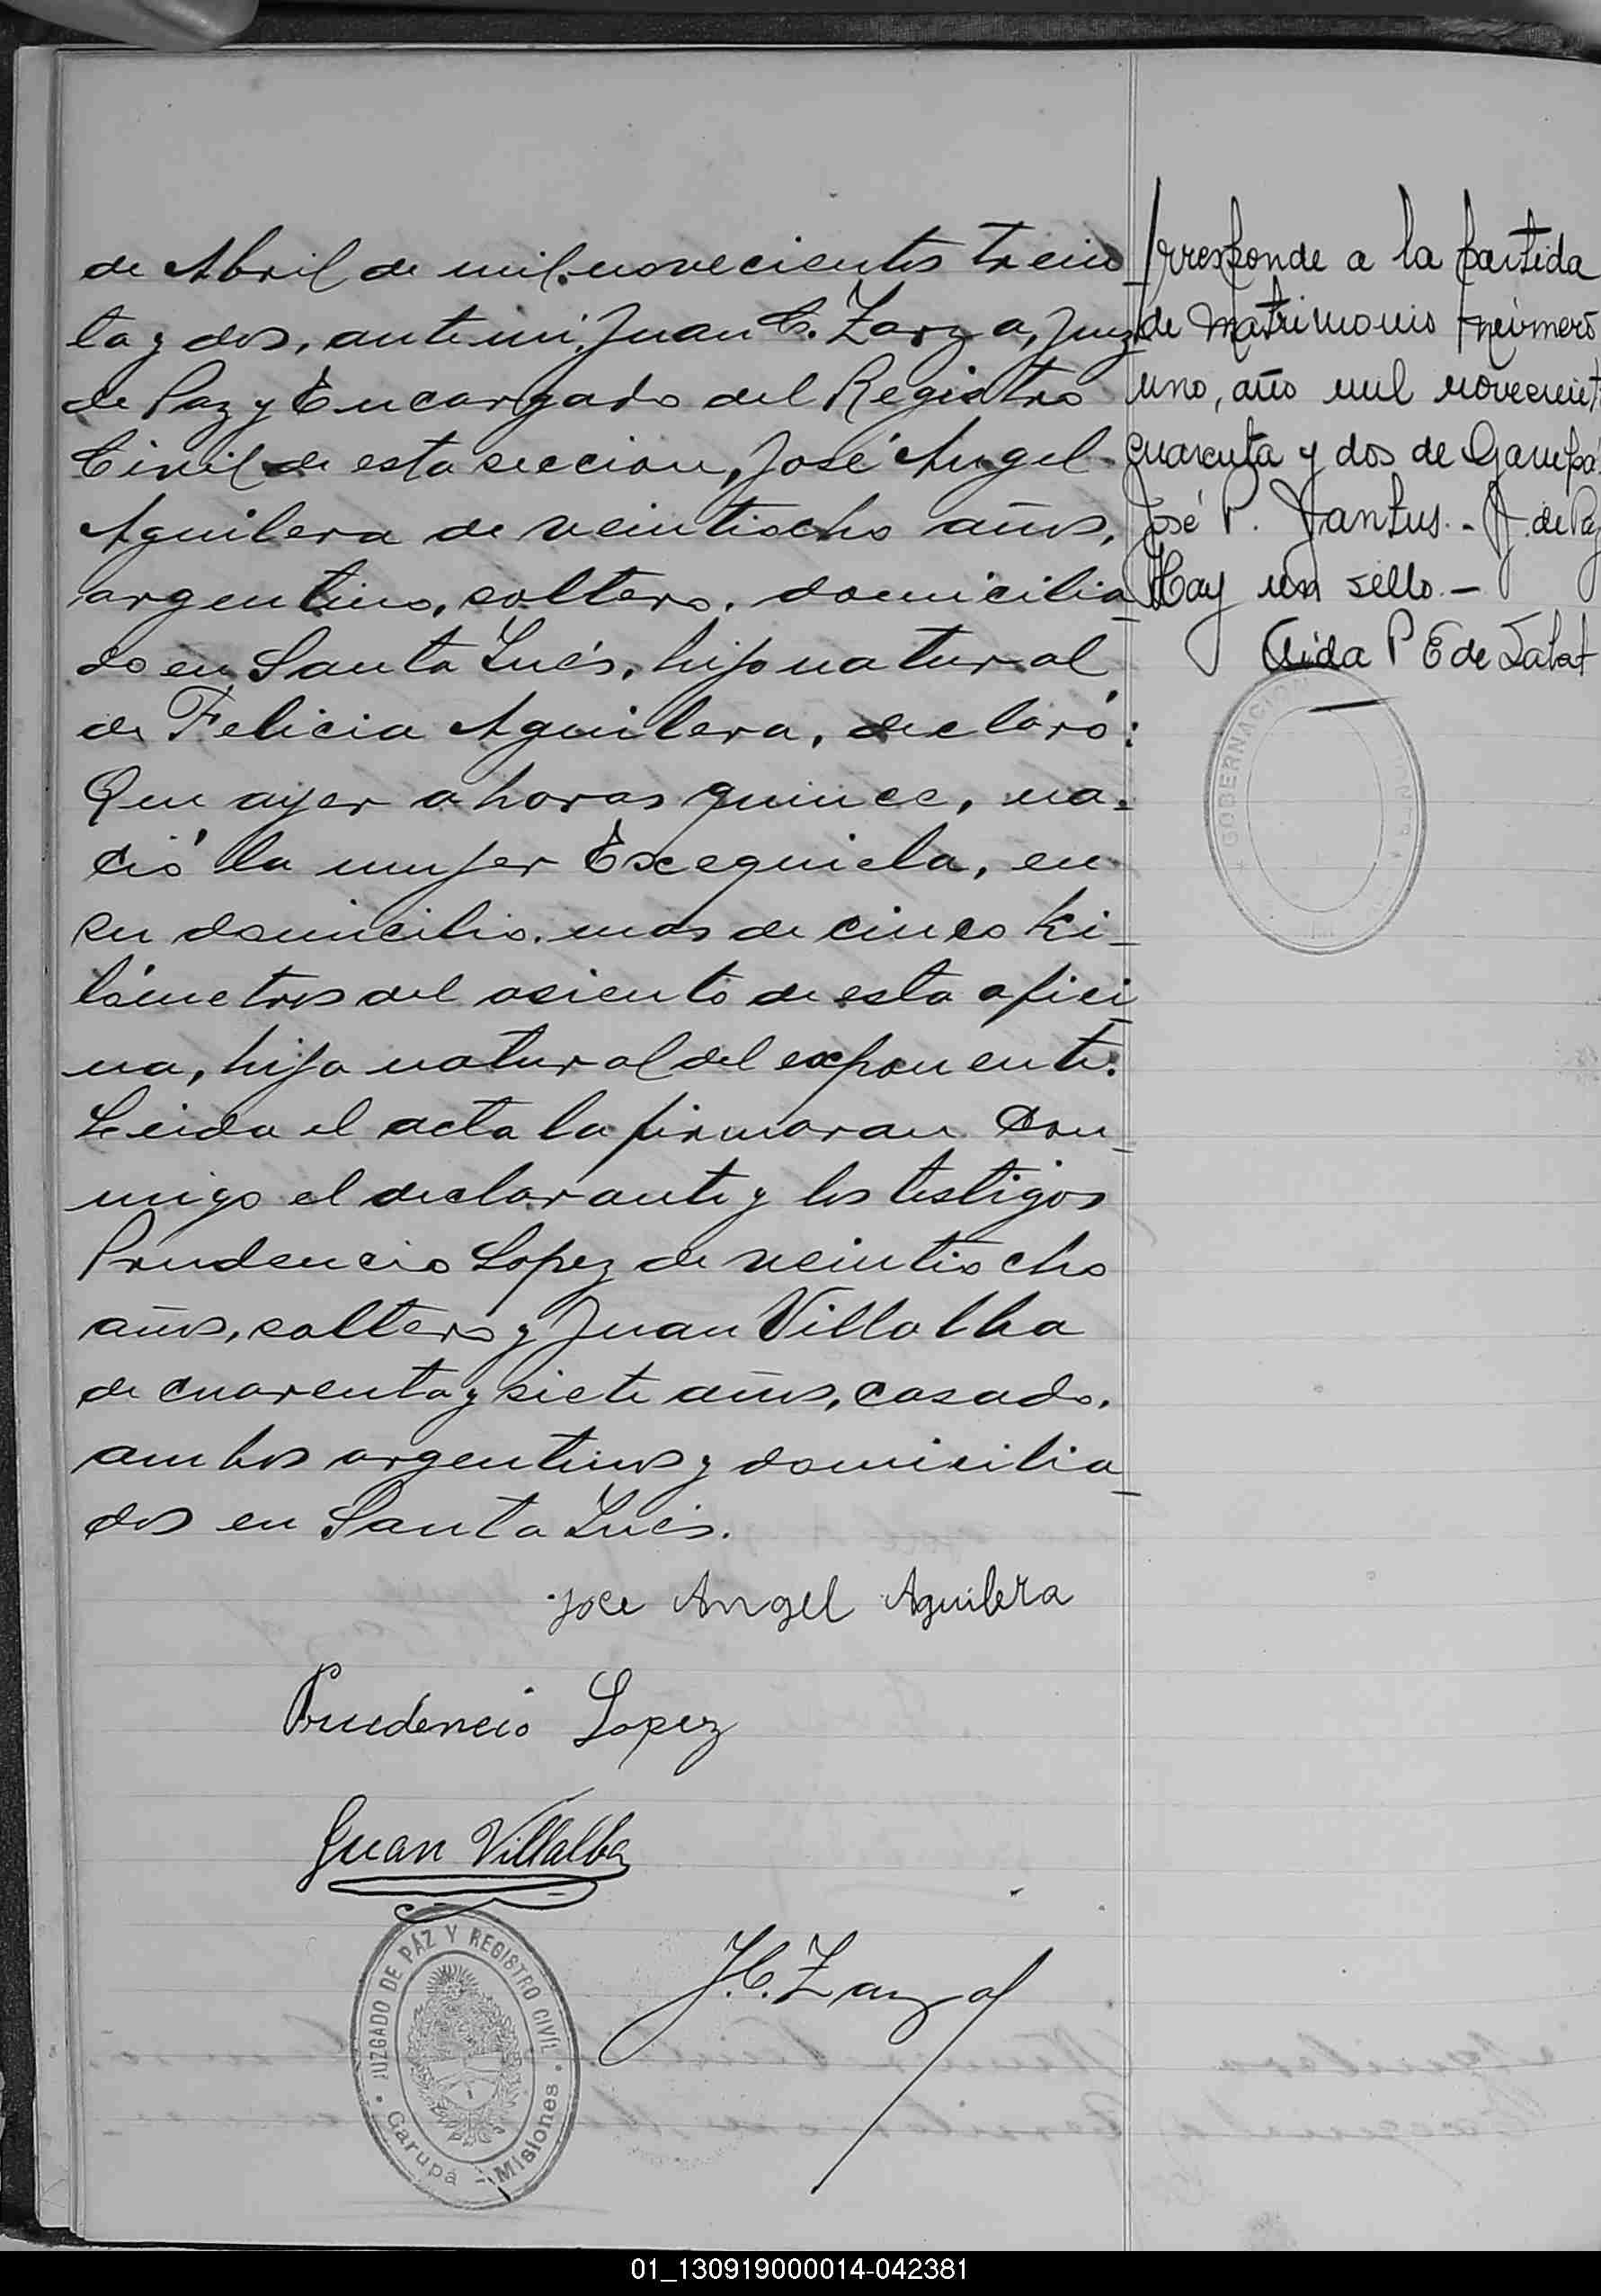 de Abril de mil novecientos trein
ta y dos, ante mi, Juan C. Zarza, Juez
de Paz y Encargado del Registro
Civil de esta seccion, José Angel
Aguilera de veintiocho años,
argentino, soltero, domicilia
do en Santa Inés, hijo natural
de Felicia Aguilera, declaró:
Que ayer a horas quince, na-
ció la mujer Exequiela, en
su domicilio, mas de cinco ki-
lómetros del asiento de esta ofici
na, hija natural del exponente.
Leida el acta la firmaran con
migo el declarante y los testigos
Prudencio Lopez de veintiocho
años, soltero y Juan Villalba
de cuarenta y siete años, casado,
ambos argentinos y domicilia
dos en Santa Inés.
Jose Angel Aguilera
Prudencio Lopez
Juan Villalba
J. C. Zarza
JUZGADO DE PAZ Y REGISTRO CIVIL
Garupá - Misiones
rresponde a la partida
de matrimonio número
uno, año mil novecient
cuarenta y dos de Garupá.
José P. - J. de Paz
Hay un sello. -
Aida P E de
GOBERNACION
01_130919000014-042381